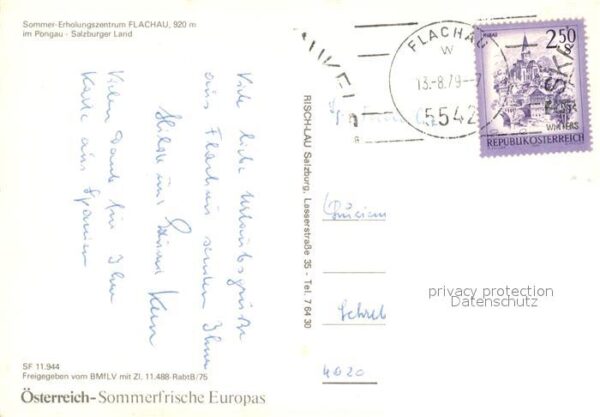 Sommer-Erholungszentrum FLACHAU, 920 m
im Pongau - Salzburger Land
Viele liebe Urlaubsgrüße
aus Flachau senden Ihnen
Hilde und
Vielen Dank für Ihre
Karte aus Spanien
SF 11.944
Freigegeben vom BMfLV mit Zl. 11.488-RabtB/75
Österreich-Sommerfrische Europas
RISCH-LAU Salzburg, Lasserstraße 35 - Tel. 7 64 30
FLACHAU
W
13.-8.79-7
5542
MURAU
2.50
S
REPUBLIK ÖSTERREICH
4020
privacy protection
Datenschutz